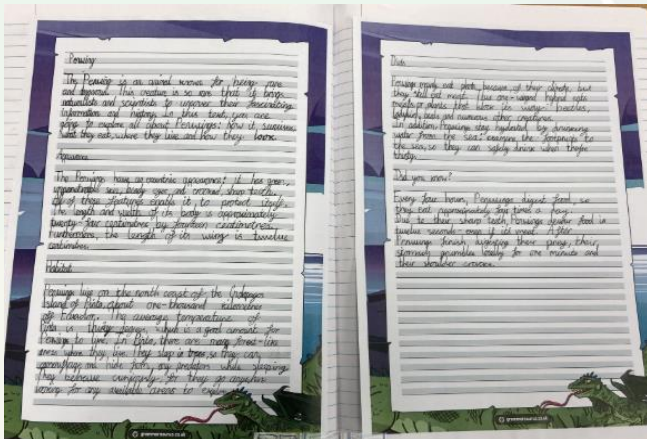 Penuwing
The Penuwing is an animal known for being rare
and dangerous. This creature is so rare that it brings
naturalists and scientists to uncover their fascinating
information and history. In this text, you are
going to explore all about Penuwings: how it survives,
what they eat, where they live and how they look.
Appearance
The Penuwings have an eccentric appearance: it has green,
impenetrable skin, beady eyes and crooked, sharp teeth.
All of these features enables it to protect itself.
The length and width of its body is approximately
twenty-four centimetres by fourteen centimetres.
Furthermore, the length of its wings is twelve
centimetres.
Habitat
Penuwings live on the north coast of the Galapagos
Island of Pinta, about one-thousand kilometres
off Ecuador. The average temperature of
Pinta is thirty degrees, which is a good amount for
Penuwings to live. In Pinta, there are many forest-like
areas where they live. They sleep in trees, so they can
camouflage and hide from any predators while sleeping.
They behave for they go
for any available areas to explore
Diets
Penuwings mainly eat plants because of their climate but
they still eat meat. This one-winged hybrid eats
meats or plants that
ladybirds, and numerous other creatures.
In addition, Penuwings stay hydrated by drinking
water from the sea:
the sea, so they can safely drink when they're
thirsty.
Did you know?
Every four hours, Penuwings digest food, so
they eat approximately four times a day.
Due to their sharp teeth, Penuwings food in
twelve seconds its meal. After
Penuwings finish digesting their prey, their
stomach grumbles loudly for one minute and
their shoulder
© grammarsaurus.co.uk
© grammarsaurus.co.uk